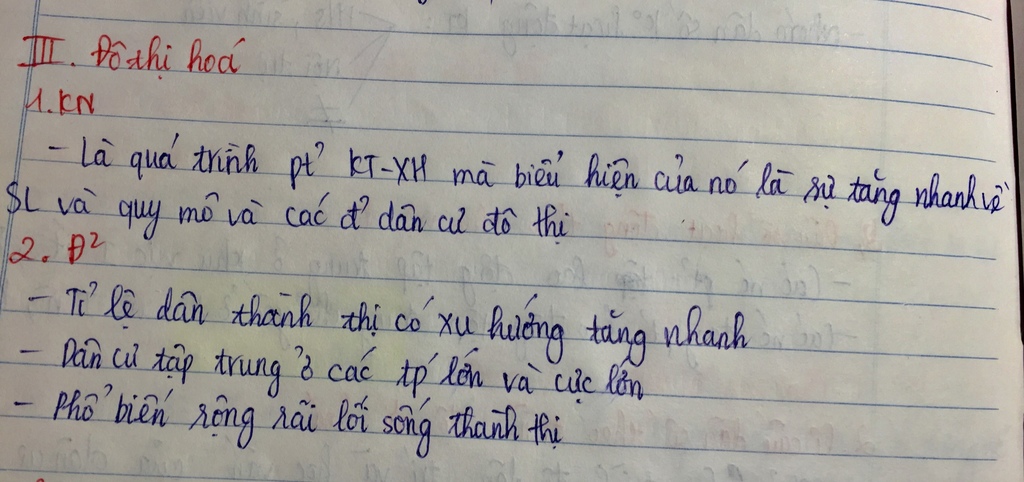 III. Đô thị hoá
1. KN
- Là quá trình pt' KT-XH mà biểu hiện của nó là sự tăng nhanh về
SL và quy mô và các đ' dân cư đô thị
2. Đ²
- Tỉ lệ dân thành thị có xu hướng tăng nhanh
- Dân cư tập trung ở các tp lớn và cực lớn
- Phổ biến rộng rãi lối sống thành thị